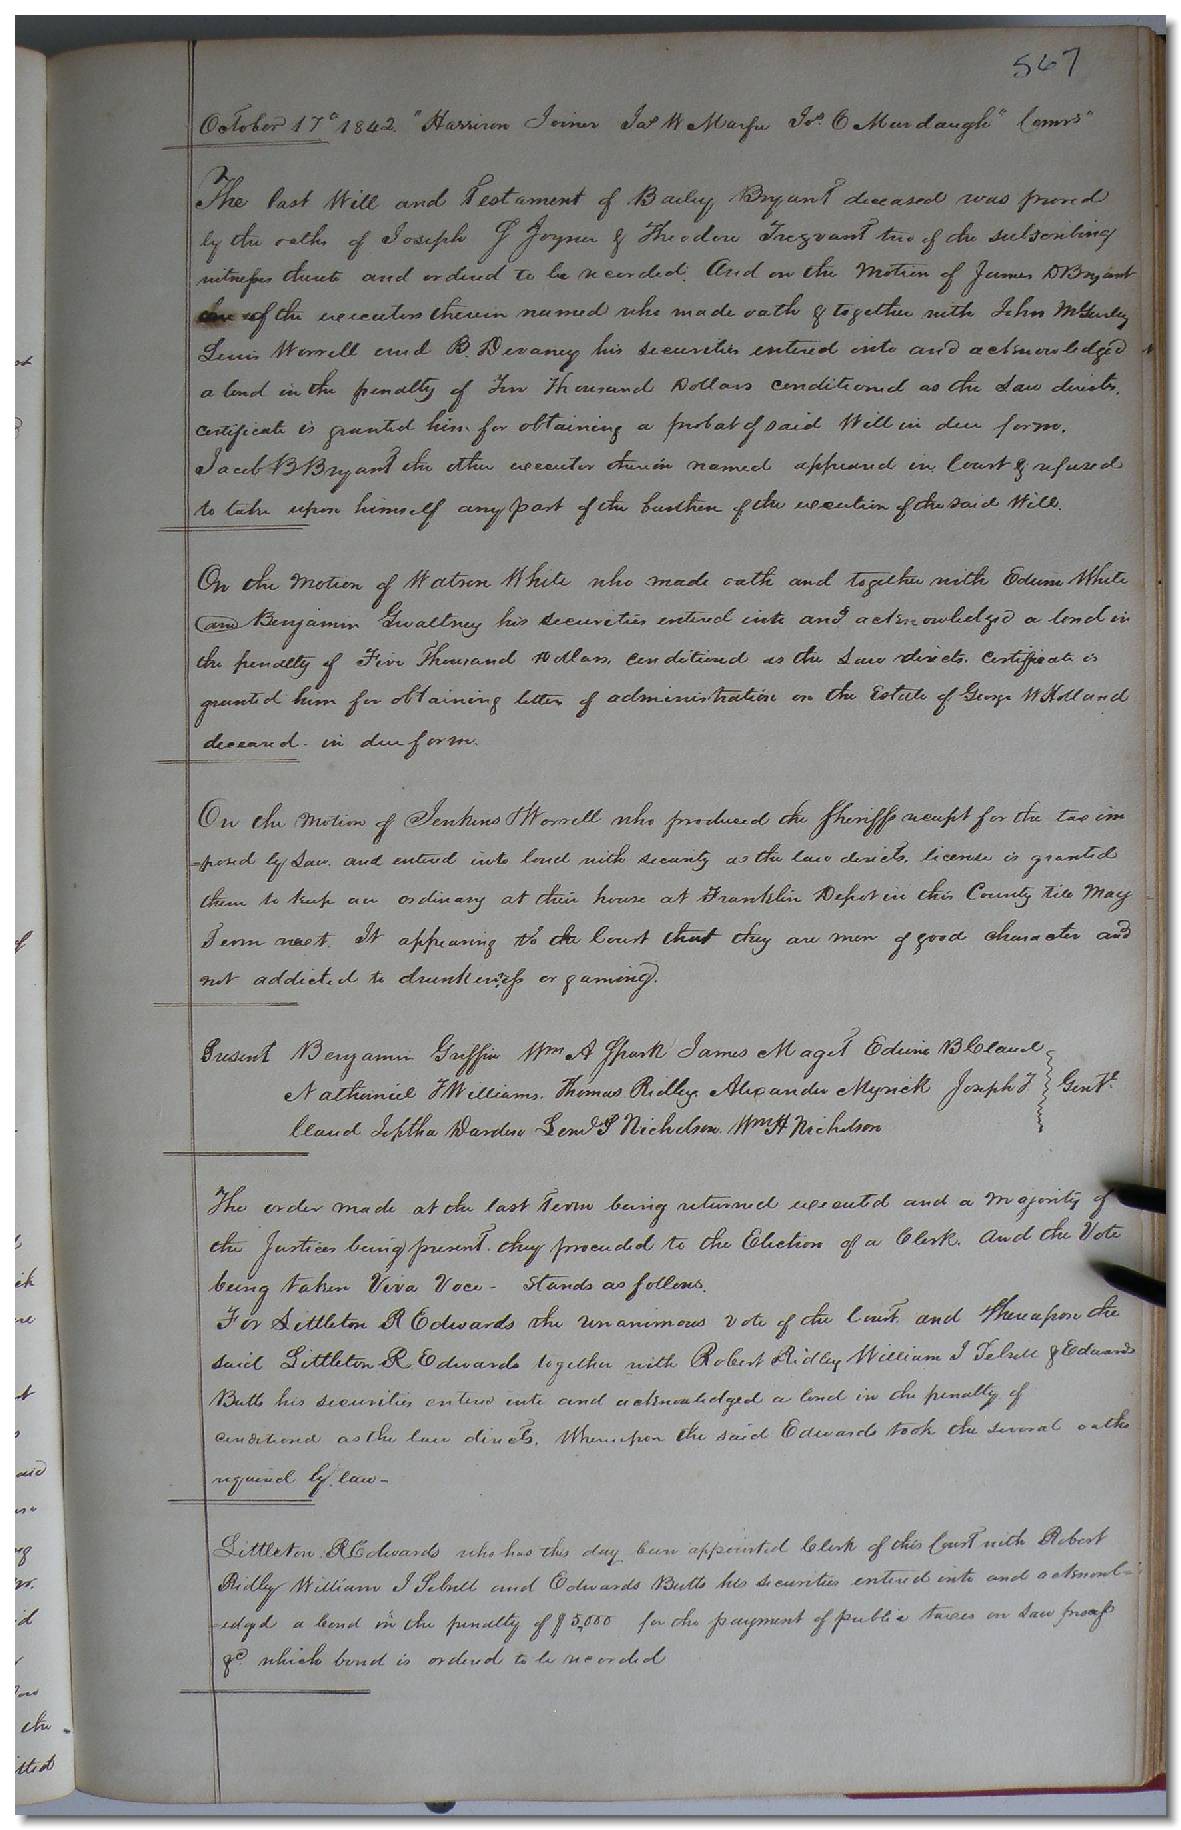 567
October 17th 1842. "Harrison Joiner Jas W Murfee Jos. C Murdaugh" Comrs"
The last Will and Testament of Bailey Bryant deceased was proved
by the oaths of Joseph G Joyner & Theodore Trezvant two of the subscribing
witnesses thereto and ordered to be recorded. And on the Motion of James D Bryant
one of the executors therein named who made oath & together with John
Lewis Worrell and B. Devaney his securities entered into and acknowledged
a bond in the penalty of Ten Thousand Dollars conditioned as the Law directs.
certificate is granted him for obtaining a probat of said Will in due form.
Jacob B Bryant the other executor therein named appeared in Court & refused
to take upon himself any part of the burthen of the execution of the said Will.
On the Motion of Watson White who made oath and together with Edwin White
and Benjamin Gwaltney his securities entered into and acknowledged a bond in
the penalty of Five Thousand Dollars, conditioned as the Law directs. certificate is
granted him for obtaining letters of administration on the Estate of George W Holland
deceased. in due form.
On the Motion of Jenkins & Worrell who produced the Sheriffs receipt for the tax im
-posed by Law. and entered into bond with security as the law directs, license is granted
them to keep an ordinary at their house at Franklin Depot in this County till May
Term next. It appearing to the Court that they are men of good character and
not addicted to drunkeness or gaming.
Present Benjamin Griffin Wm A Spark James Maget Edwin B Claud
Nathaniel F Williams. Thomas Ridley. Alexander Myrick Joseph T. Gent.
Claud Jeptha Darden Lemd S Nicholson. Wm H Nicholson
The order made at the last Term being returned executed and a Majority of
the Justices being present. they proceeded to the Election of a Clerk. and the Vote
being taken Viva Voce - Stands as follows.
For Littleton R Edwards the unanimous vote of the Court. and thereupon the
said Littleton R Edwards together with Robert Ridley William J Sebrell & Edwards
Butts his securities enterd into and acknowledged a bond in the penalty of
conditioned as the law directs. Whereupon the said Edwards took the several oaths
required by law -
Littleton R Edwards who has this day been appointed Clerk of this Court with Robert
Ridley William J Sebrell and Edwards Butts his securities entered into and acknowl-
-edged a bond in the penalty of $5,000 for the payment of public taxes on Law process
&c which bond is ordered to be recorded